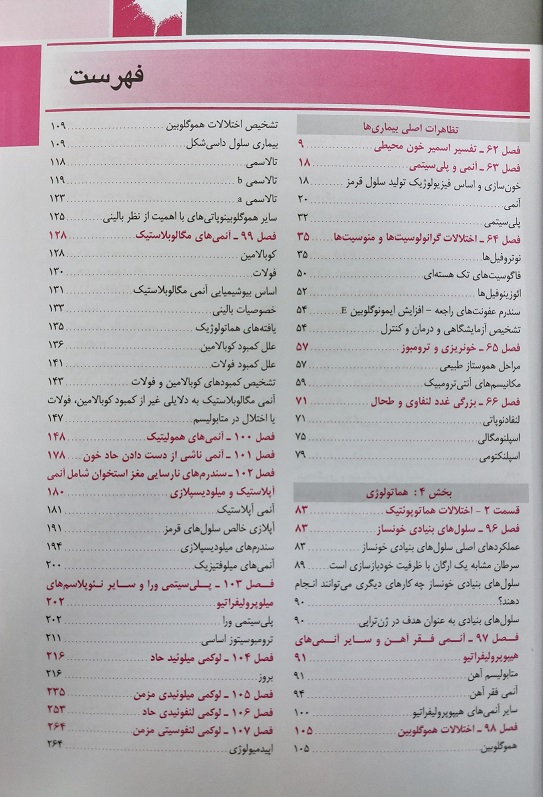 فهرست
تظاهرات اصلی بیماری‌ها
فصل ۶۲ ـ تفسیر اسمیر خون محیطی ........ ۹
فصل ۶۳ ـ آنمی و پلی‌سیتمی ........ ۱۸
خون‌سازی و اساس فیزیولوژیک تولید سلول قرمز ........ ۱۸
آنمی ........ ۲۰
پلی‌سیتمی ........ ۳۲
فصل ۶۴ ـ اختلالات گرانولوسیت‌ها و منوسیت‌ها ........ ۳۵
نوتروفیل‌ها ........ ۳۵
فاگوسیت‌های تک هسته‌ای ........ ۵۰
ائوزینوفیل‌ها ........ ۵۲
سندرم عفونت‌های راجعه - افزایش ایمونوگلوبین E ........ ۵۴
تشخیص آزمایشگاهی و درمان و کنترل ........ ۵۴
فصل ۶۵ ـ خونریزی و ترومبوز ........ ۵۷
مراحل هموستاز طبیعی ........ ۵۷
مکانیسم‌های آنتی‌ترومبیک ........ ۵۹
فصل ۶۶ ـ بزرگی غدد لنفاوی و طحال ........ ۷۱
لنفادنوپاتی ........ ۷۱
اسپلنومگالی ........ ۷۵
اسپلنکتومی ........ ۷۹
بخش ۴: هماتولوژی
قسمت ۲ - اختلالات هماتوپوئتیک ........ ۸۳
فصل ۹۶ ـ سلول‌های بنیادی خونساز ........ ۸۳
عملکردهای اصلی سلول‌های بنیادی خونساز ........ ۸۳
سرطان مشابه یک ارگان با ظرفیت خودبازسازی است ........ ۸۹
سلول‌های بنیادی خونساز چه کارهای دیگری می‌توانند انجام
دهند؟ ........ ۹۰
سلول‌های بنیادی به عنوان هدف در ژن‌تراپی ........ ۹۰
فصل ۹۷ ـ آنمی فقر آهن و سایر آنمی‌های
هیپوپرولیفراتیو ........ ۹۱
متابولیسم آهن ........ ۹۱
آنمی فقر آهن ........ ۹۴
سایر آنمی‌های هیپوپرولیفراتیو ........ ۱۰۰
فصل ۹۸ ـ اختلالات هموگلوبین ........ ۱۰۵
هموگلوبین ........ ۱۰۵
تشخیص اختلالات هموگلوبین ........ ۱۰۹
بیماری سلول داسی‌شکل ........ ۱۰۹
تالاسمی ........ ۱۱۸
تالاسمی b ........ ۱۱۹
تالاسمی a ........ ۱۲۳
سایر هموگلوبینوپاتی‌های با اهمیت از نظر بالینی ........ ۱۲۵
فصل ۹۹ ـ آنمی‌های مگالوبلاستیک ........ ۱۲۸
کوبالامین ........ ۱۲۸
فولات ........ ۱۳۰
اساس بیوشیمیایی آنمی مگالوبلاستیک ........ ۱۳۱
خصوصیات بالینی ........ ۱۳۳
یافته‌های هماتولوژیک ........ ۱۳۵
علل کمبود کوبالامین ........ ۱۳۶
علل کمبود فولات ........ ۱۴۱
تشخیص کمبودهای کوبالامین و فولات ........ ۱۴۳
آنمی مگالوبلاستیک به دلایلی غیر از کمبود کوبالامین، فولات
یا اختلال در متابولیسم ........ ۱۴۷
فصل ۱۰۰ ـ آنمی‌های همولیتیک ........ ۱۴۸
فصل ۱۰۱ ـ آنمی ناشی از دست دادن حاد خون ........ ۱۷۸
فصل ۱۰۲ ـ سندرم‌های نارسایی مغز استخوان شامل آنمی
آپلاستیک و میلودیسپلازی ........ ۱۸۰
آنمی آپلاستیک ........ ۱۸۱
آپلازی خالص سلول‌های قرمز ........ ۱۹۱
سندرم‌های میلودیسپلازی ........ ۱۹۴
آنمی‌های میلوفتیزیک ........ ۲۰۰
فصل ۱۰۳ ـ پلی‌سیتمی ورا و سایر نئوپلاسم‌های
میلوپرولیفراتیو ........ ۲۰۲
پلی‌سیتمی ورا ........ ۲۰۲
ترومبوسیتوز اساسی ........ ۲۱۱
فصل ۱۰۴ ـ لوکمی میلوئید حاد ........ ۲۱۶
بروز ........ ۲۱۶
فصل ۱۰۵ ـ لوکمی میلوئیدی مزمن ........ ۲۳۵
فصل ۱۰۶ ـ لوکمی لنفوئیدی حاد ........ ۲۵۳
فصل ۱۰۷ ـ لوکمی لنفوسیتی مزمن ........ ۲۶۴
اپیدمیولوژی ........ ۲۶۴